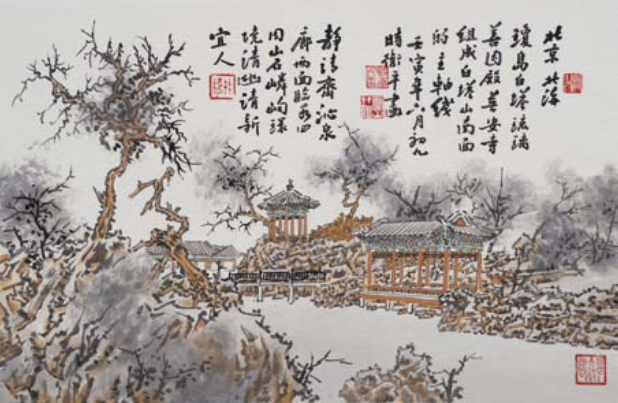 北京 北海
瓊島白塔琉璃
善因殿 普安寺
組成白塔山南面
的主軸线
壬寅年六月初九
時衛平畫
靜心齋 沁泉
廊两面臨水四
周山石嶙峋環
境清幽清新
宜人